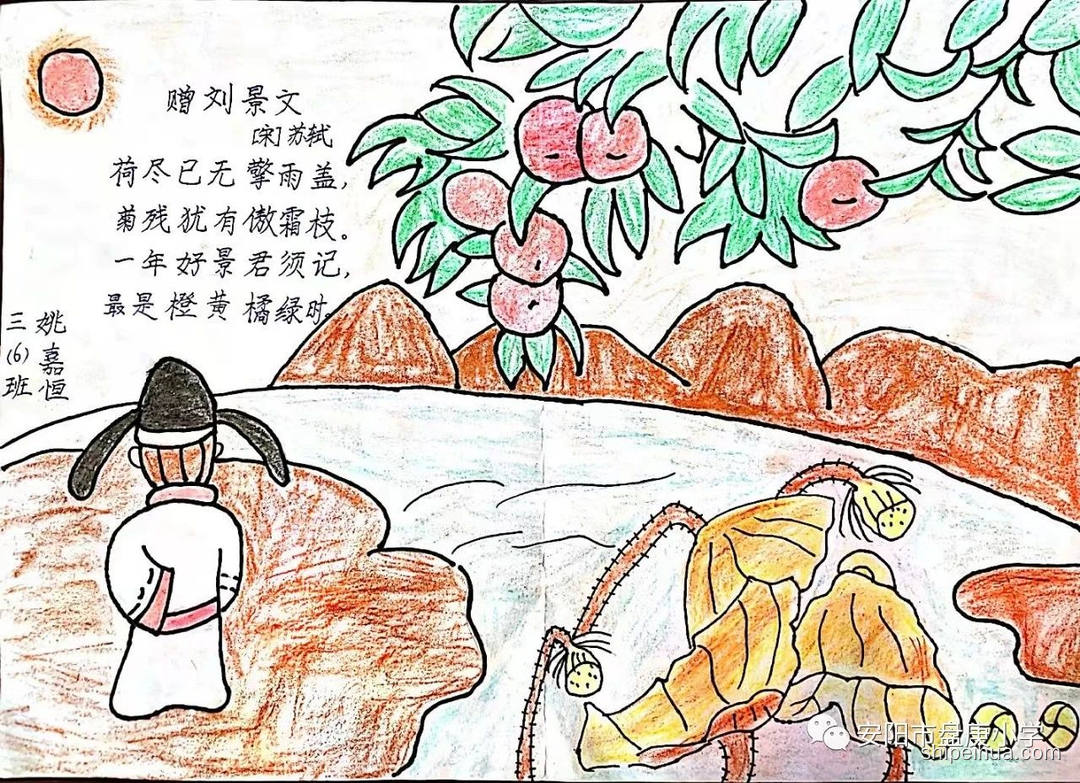 赠刘景文
[宋]苏轼
荷尽已无擎雨盖,
菊残犹有傲霜枝。
一年好景君须记,
最是橙黄橘绿时。
三(6)班
姚嘉恒
安阳市盘康小学
shipeihua.com